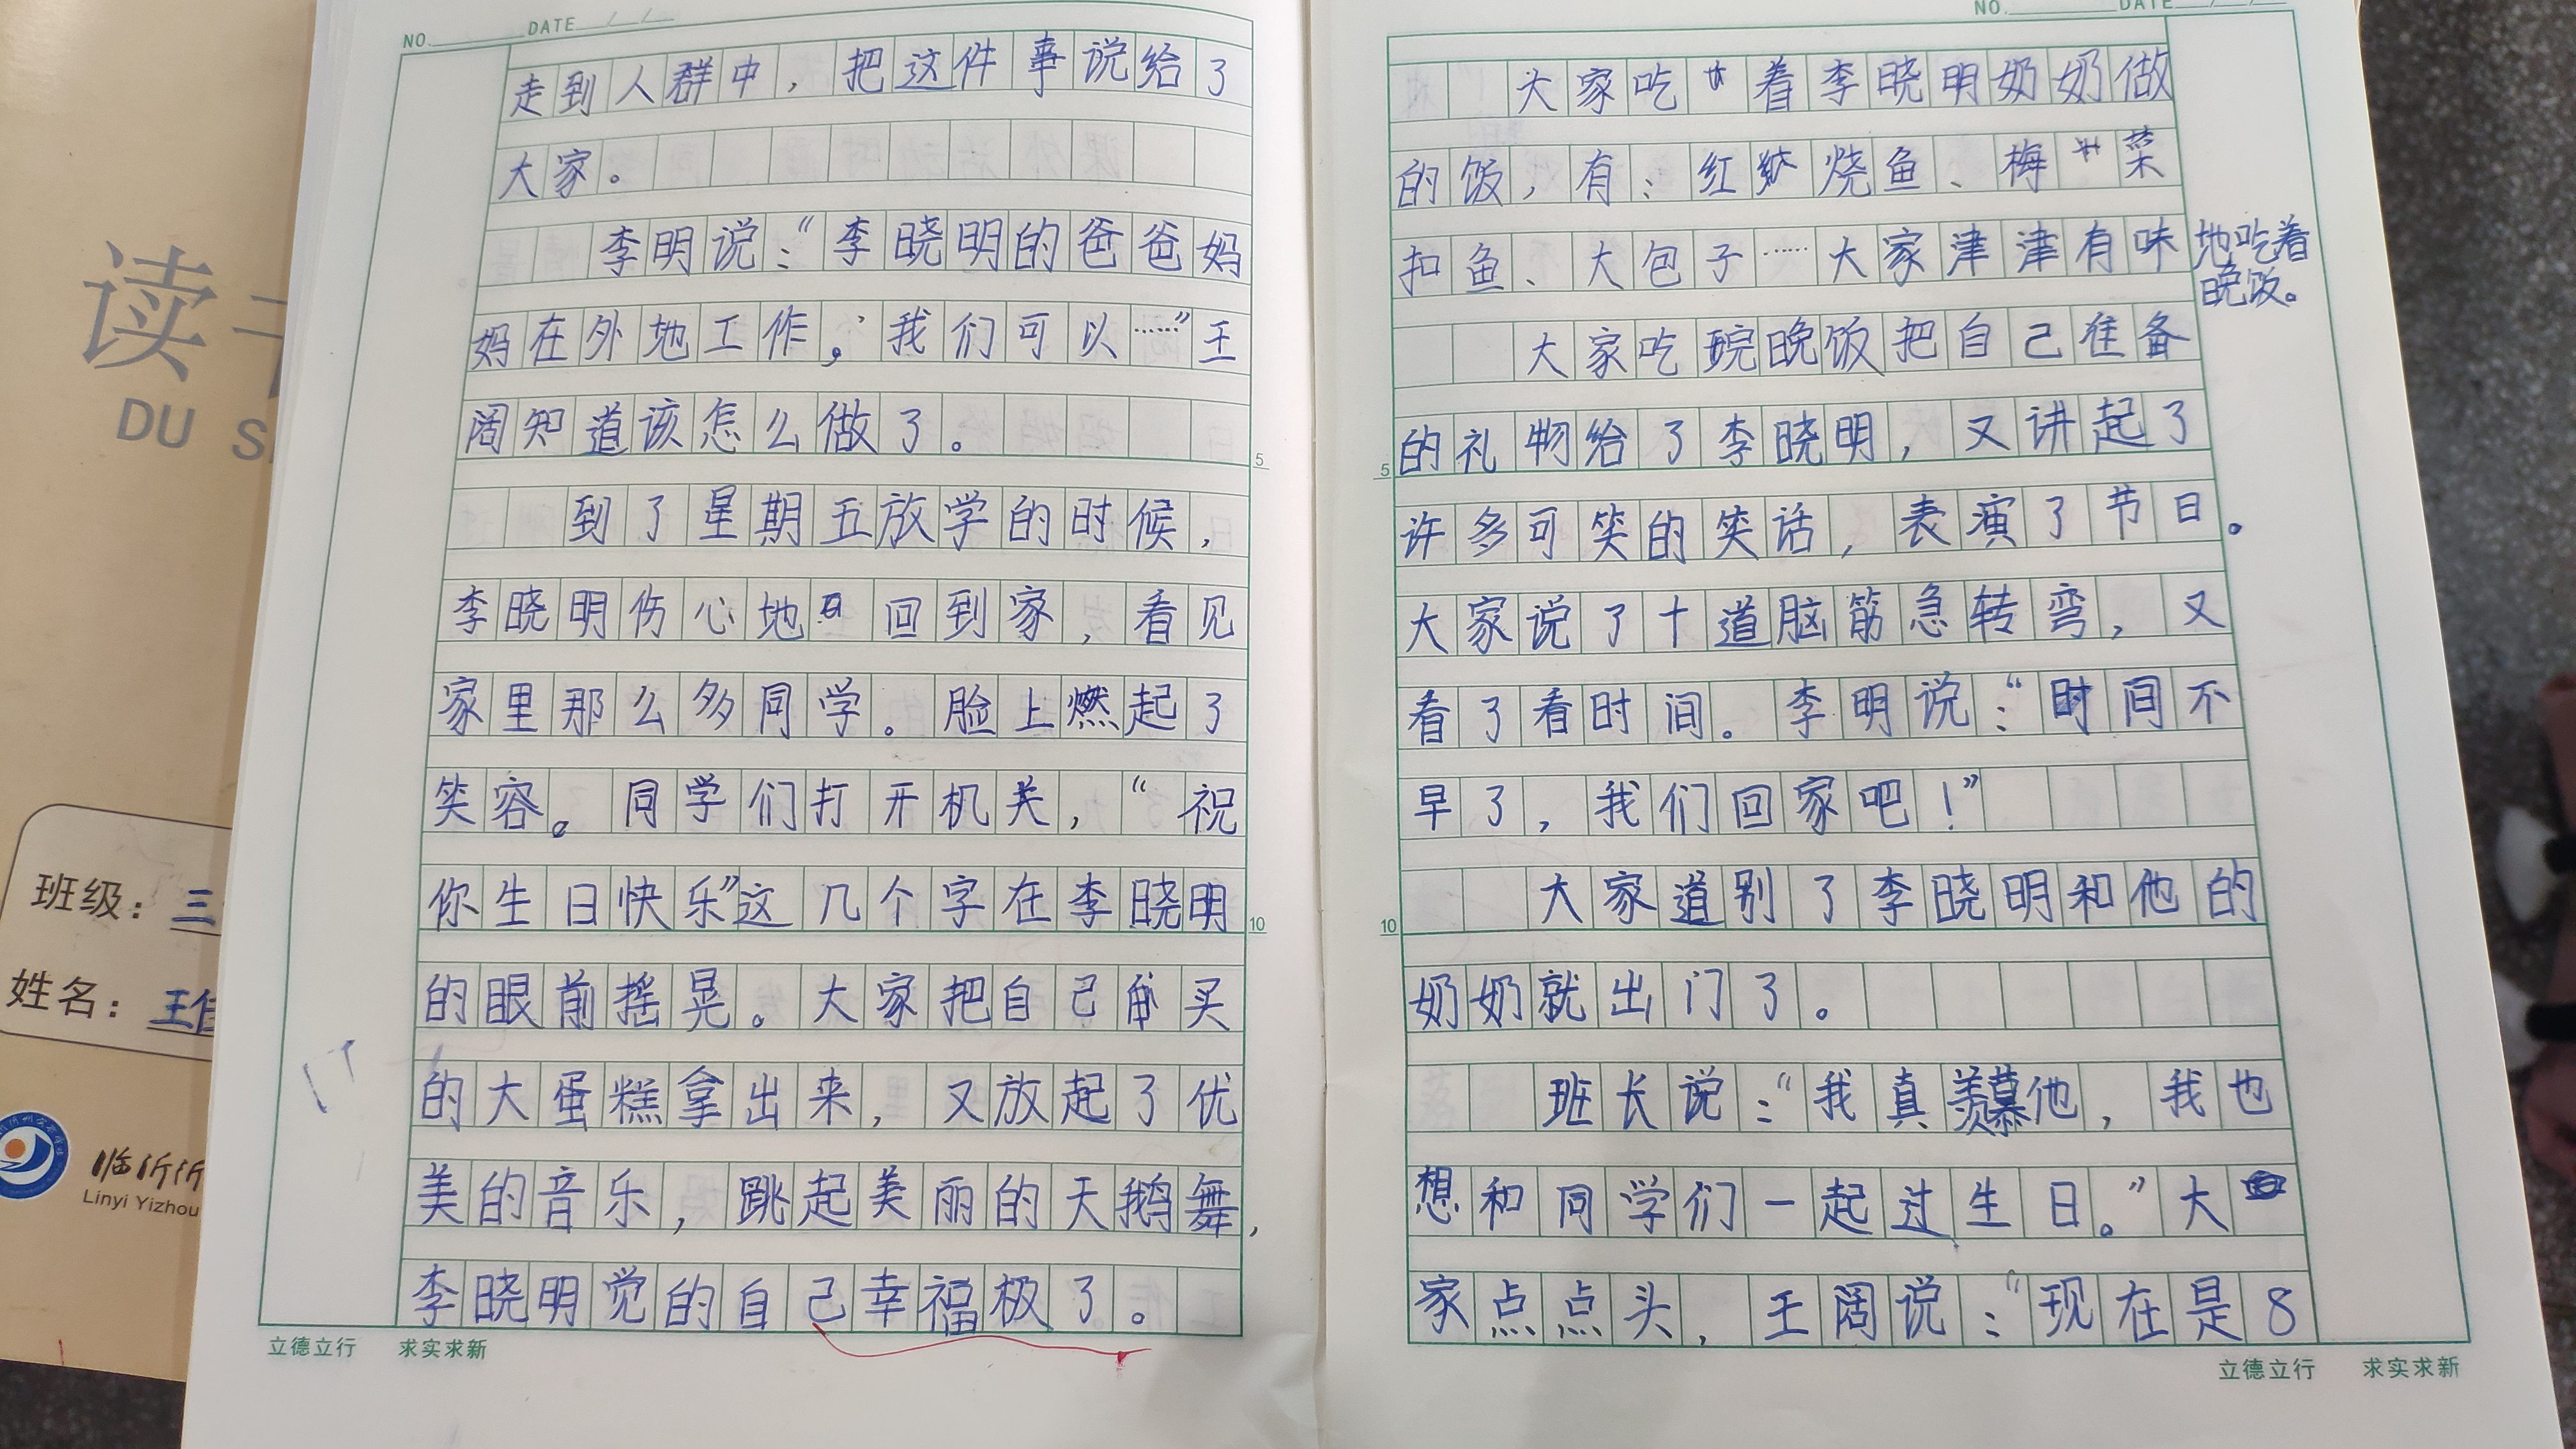 读
DU S
班级：三
姓名：王佳
临沂沂
Linyi Yizhou
NO. DATE / /
走到人群中，把这件事说给了
大家。
李明说：“李晓明的爸爸妈
妈在外地工作。我们可以……”王
阔知道该怎么做了。
5
到了星期五放学的时候，
李晓明伤心地回到家，看见
家里那么多同学。脸上燃起了
笑容。同学们打开机关，“祝
你生日快乐”这几个字在李晓明
10
的眼前摇晃。大家把自己买
的大蛋糕拿出来，又放起了优
美的音乐，跳起美丽的天鹅舞，
李晓明觉的自己幸福极了。
立德立行 求实求新
NO. DATE / /
大家吃着李晓明奶奶做
的饭，有、红烧鱼、梅菜
扣鱼、大包子……大家津津有味地吃着晚饭。
大家吃晚饭把自己准备
5
的礼物给了李晓明，又讲起了
许多可笑的笑话，表演了节日。
大家说了十道脑筋急转弯，又
看了看时间。李明说：“时间不
早了，我们回家吧！”
大家道别了李晓明和他的
10
奶奶就出门了。
班长说：“我真羡慕他，我也
想和同学们一起过生日。”大
家点点头，王阔说：“现在是8
立德立行 求实求新